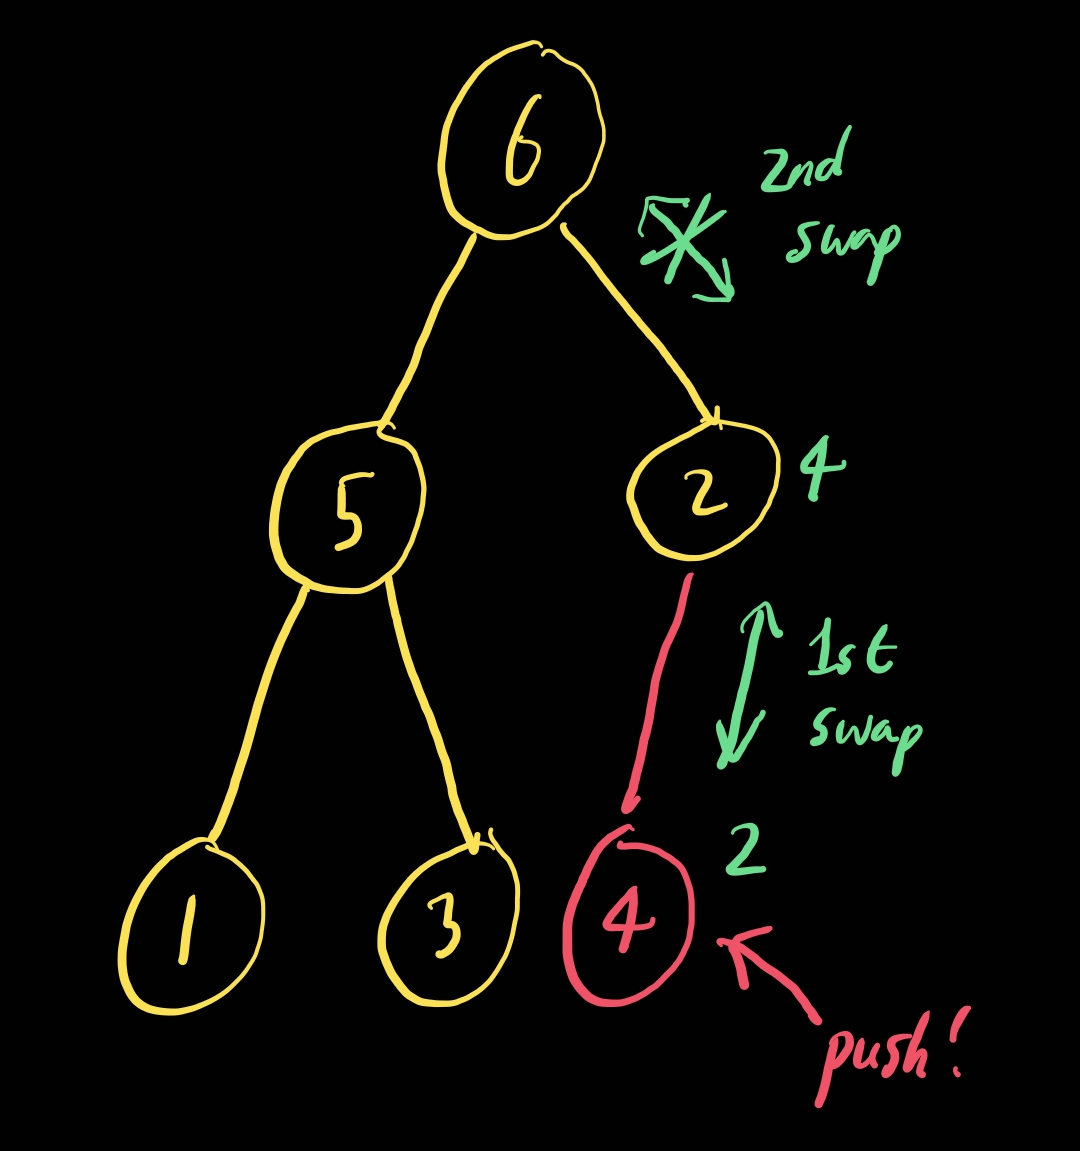 6
2nd
swap
5
2
4
1st
swap
2
1
3
4
push!